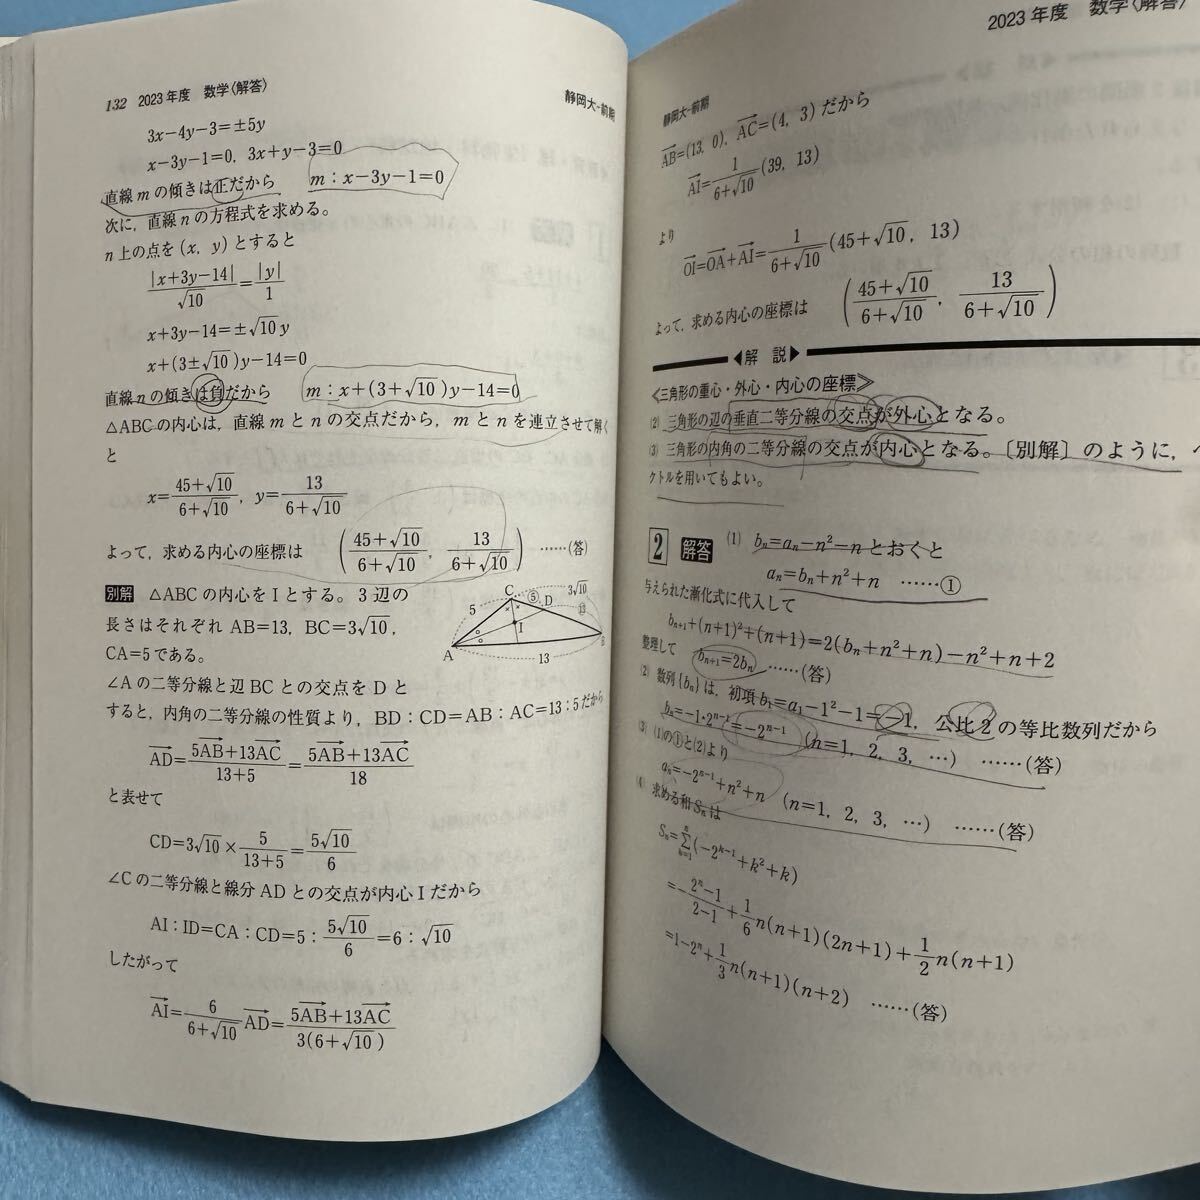 132 2023年度 数学〈解答〉
静岡大-前期
3x-4y-3=±5y
x-3y-1=0, 3x+y-3=0
直線mの傾きは正だから m:x-3y-1=0
次に,直線nの方程式を求める。
n上の点を(x, y)とすると
|x+3y-14|/√10=|y|/1
x+3y-14=±√10y
x+(3±√10)y-14=0
直線nの傾きは負だから m:x+(3+√10)y-14=0
△ABCの内心は,直線mとnの交点だから,mとnを連立させて解く
と
x=(45+√10)/(6+√10), y=13/(6+√10)
よって,求める内心の座標は ((45+√10)/(6+√10), 13/(6+√10)) ……(答)
別解 △ABCの内心をIとする。3辺の
長さはそれぞれAB=13, BC=3√10,
CA=5である。
C ⑤ D 3√10
5 13
I
A B
13
∠Aの二等分線と辺BCとの交点をDと
すると,内角の二等分線の性質より,BD:CD=AB:AC=13:5だから
→AD=(5→AB+13→AC)/(13+5)=(5→AB+13→AC)/18
と表せて
CD=3√10×5/(13+5)=5√10/6
∠Cの二等分線と線分ADとの交点が内心Iだから
AI:ID=CA:CD=5:5√10/6=6:√10
したがって
→AI=6/(6+√10)→AD=(5→AB+13→AC)/(3(6+√10))
2023年度 数学〈解答〉
静岡大-前期
→AB=(13, 0), →AC=(4, 3)だから
→AI=1/(6+√10)(39, 13)
より
→OI=→OA+→AI=1/(6+√10)(45+√10, 13)
よって,求める内心の座標は ((45+√10)/(6+√10), 13/(6+√10))
◀解 説▶
≪三角形の重心・外心・内心の座標≫
(2) 三角形の辺の垂直二等分線の交点が外心となる。
(3) 三角形の内角の二等分線の交点が内心となる。〔別解〕のように,ベ
クトルを用いてもよい。
2 解答 (1) bₙ=aₙ-n²-nとおくと
aₙ=bₙ+n²+n ……①
与えられた漸化式に代入して
bₙ₊₁+(n+1)²+(n+1)=2(bₙ+n²+n)-n²+n+2
整理して bₙ₊₁=2bₙ ……(答)
(2) 数列{bₙ}は,初項b₁=a₁-1²-1=-1, 公比2の等比数列だから
bₙ=-1・2ⁿ⁻¹=-2ⁿ⁻¹ (n=1, 2, 3, …) ……(答)
(3) (1)の①と(2)より
aₙ=-2ⁿ⁻¹+n²+n (n=1, 2, 3, …) ……(答)
(4) 求める和Sₙは
Sₙ=Σₖ₌₁ⁿ(-2ᵏ⁻¹+k²+k)
=-(2ⁿ-1)/(2-1)+1/6n(n+1)(2n+1)+1/2n(n+1)
=1-2ⁿ+1/3n(n+1)(n+2) ……(答)